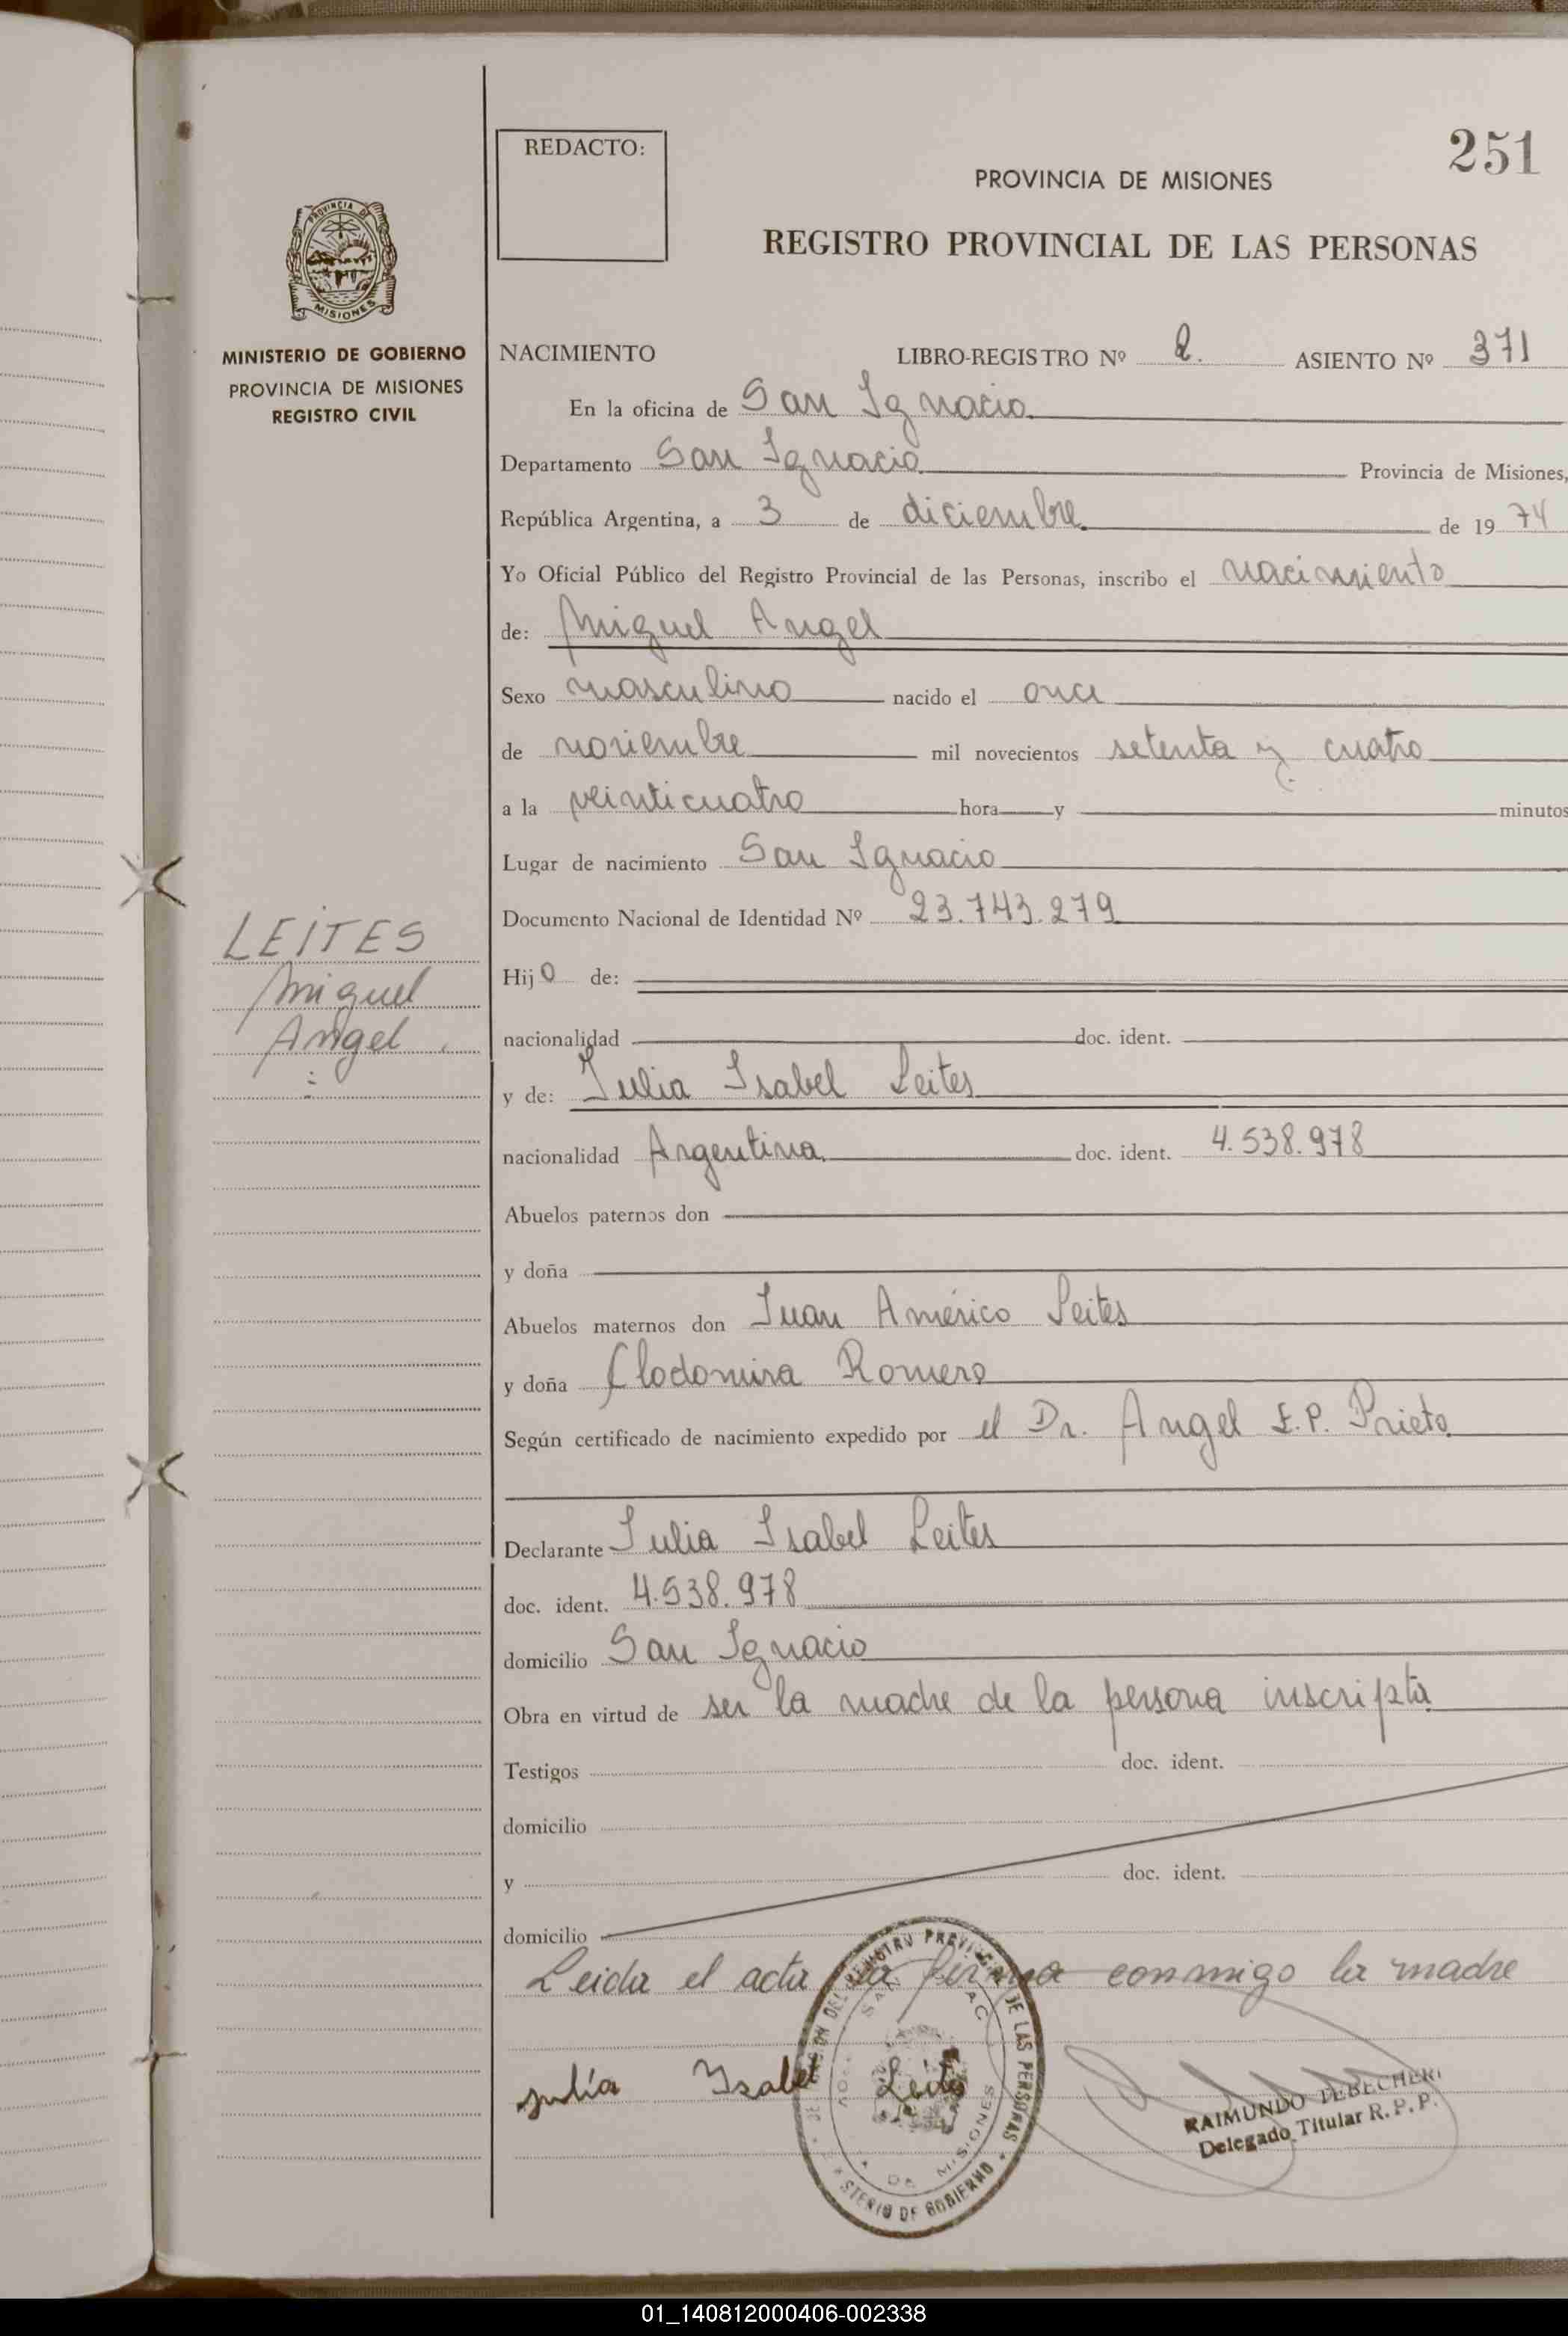 251
REDACTO:
PROVINCIA DE MISIONES
REGISTRO PROVINCIAL DE LAS PERSONAS
PROVINCIA DE
MISIONES
MINISTERIO DE GOBIERNO
PROVINCIA DE MISIONES
REGISTRO CIVIL
NACIMIENTO LIBRO-REGISTRO Nº 2. ASIENTO Nº 371
En la oficina de San Ignacio
Departamento San Ignacio Provincia de Misiones,
República Argentina, a 3 de diciembre de 1974
Yo Oficial Público del Registro Provincial de las Personas, inscribo el nacimiento
de: Miguel Angel
Sexo masculino nacido el once
de noviembre mil novecientos setenta y cuatro
a la veinticuatro hora y minutos
Lugar de nacimiento San Ignacio
Documento Nacional de Identidad Nº 23.743.279
LEITES
Miguel
Angel
Hijo de:
nacionalidad doc. ident.
y de: Julia Isabel Leites
nacionalidad Argentina doc. ident. 4.538.978
Abuelos paternos don
y doña
Abuelos maternos don Juan Américo Leites
y doña Clodomira Romero
Según certificado de nacimiento expedido por el Dr. Angel E.P. Prieto
Declarante Julia Isabel Leites
doc. ident. 4.538.978
domicilio San Ignacio
Obra en virtud de ser la madre de la persona inscripta
Testigos doc. ident.
domicilio
y doc. ident.
domicilio
Leida el acta la firma conmigo la madre
julía Isabel Leites
RAIMUNDO
Delegado Titular R. P. P.
DEL REGISTRO PROVINCIAL DE LAS PERSONAS
DE MISIONES
DE GOBIERNO
01_140812000406-002338